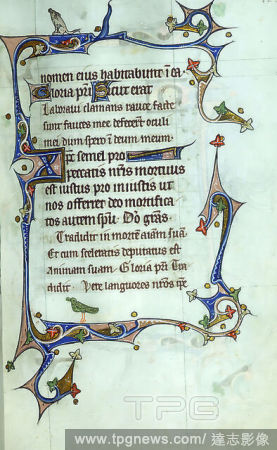 nomen eius habitabunt i ea
Gloria pri Sicut erat
Laboravi clamans rauce facte
sunt fauces mee defecerunt oculi
mei dum spero i deum meum.
Xpc semel pro
peccatis nris mortuus
est iustus pro iniustis ut
nos offerret deo mortifica
tos autem spiu Do gras
Tradidit in morte aiam sua
Et cum sceleratis deputatus est
Animam suam. Gloria pri Tra
didit. Vere languores nros ipe
TPG
www.tpgnews.com/ 達志影像